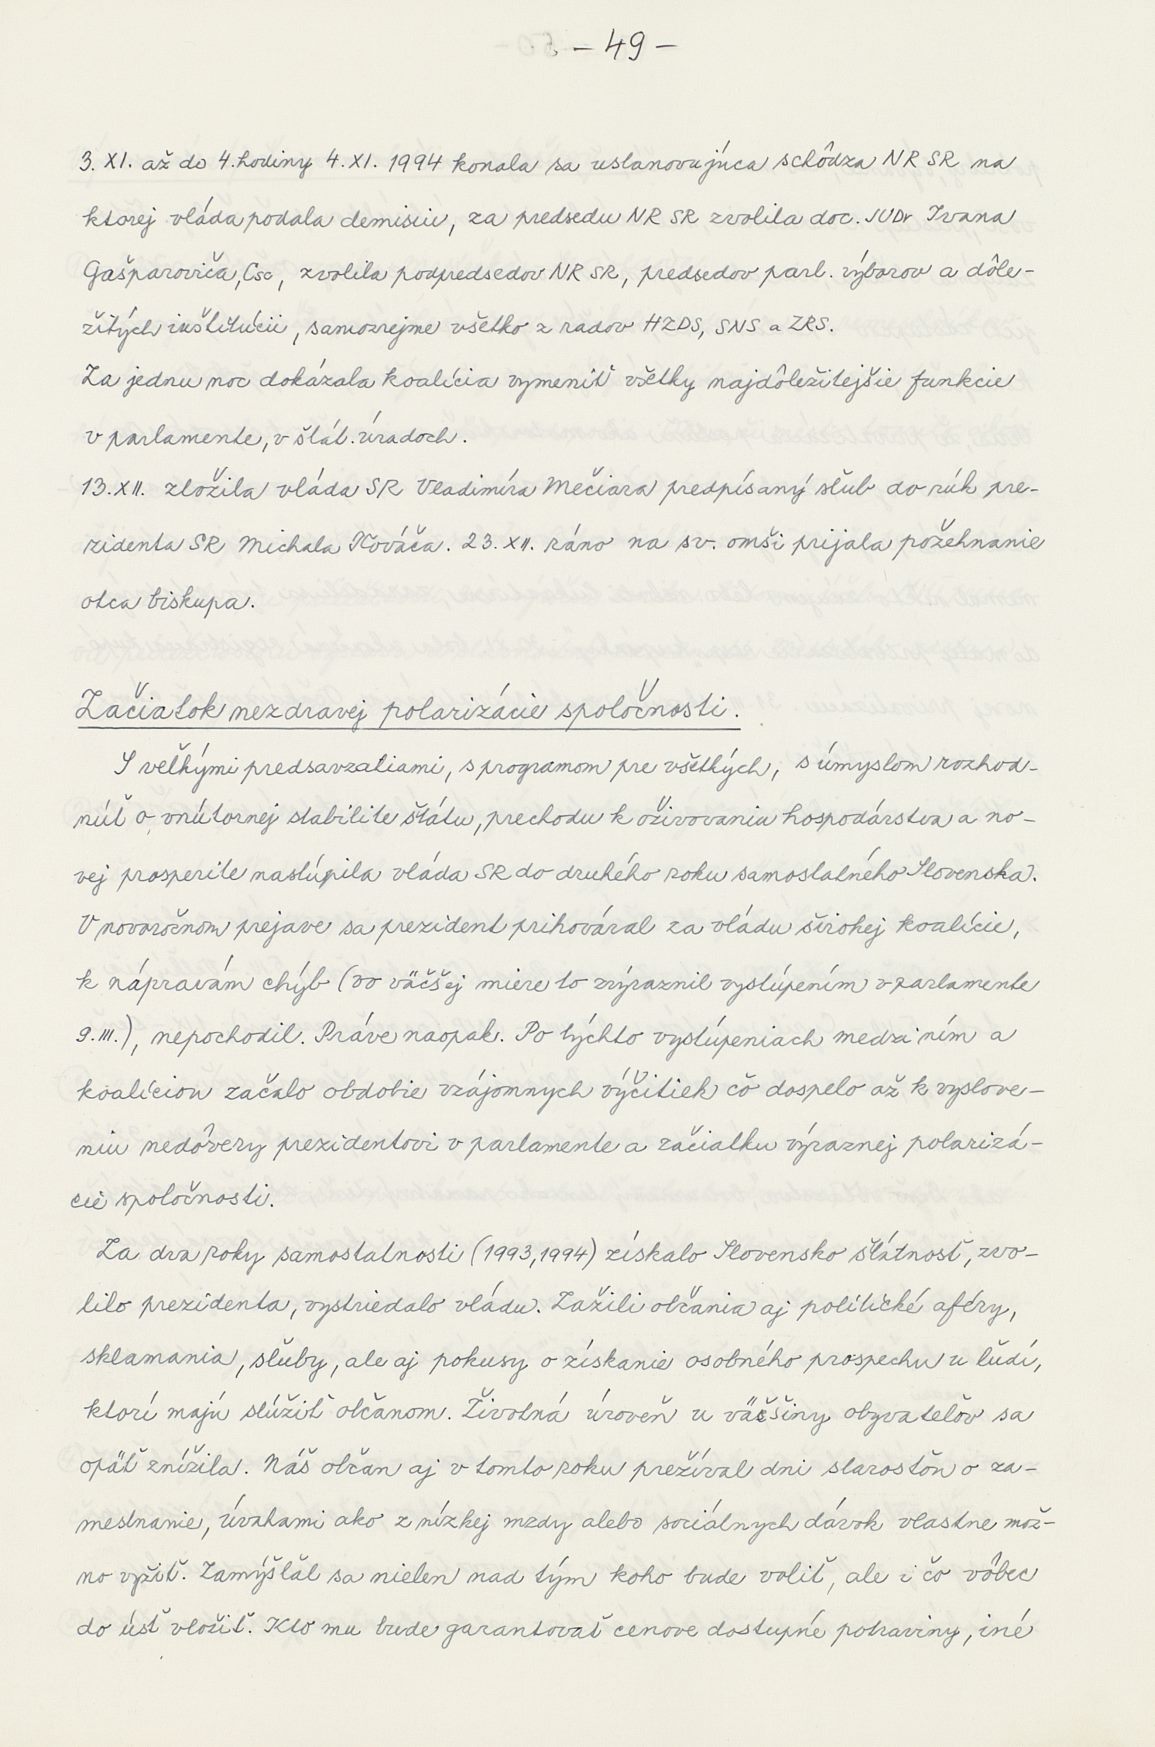 - 49 -
3. XI. až do 4. hodiny 4. XI. 1994 konala sa ustanovujúca schôdza NR SR na
ktorej vláda podala demisiu, za predsedu NR SR zvolila doc. JUDr Ivana
Gašparoviča, Csc, zvolila podpredsedov NR SR, predsedov parl. výborov a dôle-
žitých inštitúcii, samozrejme všetko z radov HZDS, SNS a ZRS.
Za jednu noc dokázala koalícia vymeniť všetky najdôležitejšie funkcie
v parlamente, v štát. úradoch.
13. XII. zložila vláda SR Vladimíra Mečiara predpísaný sľub do rúk pre-
zidenta SR Michala Kováča. 23. XII. ráno na sv. omši prijala požehnanie
otca biskupa.
Začiatok nezdravej polarizácie spoločnosti.
S veľkými predsavzatiami, s programom pre všetkých, s úmyslom rozhod-
núť o vnútornej stabilite štátu, prechodu k oživovania hospodárstva a no-
vej prosperite nastúpila vláda SR do druhého roku samostatného Slovenska.
V novoročnom prejave sa prezident prihováral za vládu širokej koalície,
k nápravám chýb (vo väčšej miere to zvýraznil vystúpením v parlamente
9. III.), nepochodil. Práve naopak. Po týchto vystúpeniach medzi ním a
koalíciou začalo obdobie vzájomnych výčitiek čo dospelo až k vyslove-
niu nedôvery prezidentovi v parlamente a začiatku výraznej polarizá-
cie spoločnosti.
Za dva roky samostatnosti (1993, 1994) získalo Slovensko štátnosť, zvo-
lilo prezidenta, vystriedalo vládu. Zažili občania aj politické aféry,
sklamania, sľuby, ale aj pokusy o získanie osobného prospechu u ľudí,
ktorí majú slúžiť občanom. Životná úroveň u väčšiny obyvateľov sa
opäť znížila. Náš občan aj v tomto roku prežíval dni starosťou o za-
mestnanie, úvahami ako z nízkej mzdy alebo sociálnych dávok vlastne mož-
no vyžiť. Zamýšľal sa nielen nad tým koho bude voliť, ale i čo vôbec
do úst vložiť. Kto mu bude garantovať cenove dostupné potraviny, iné